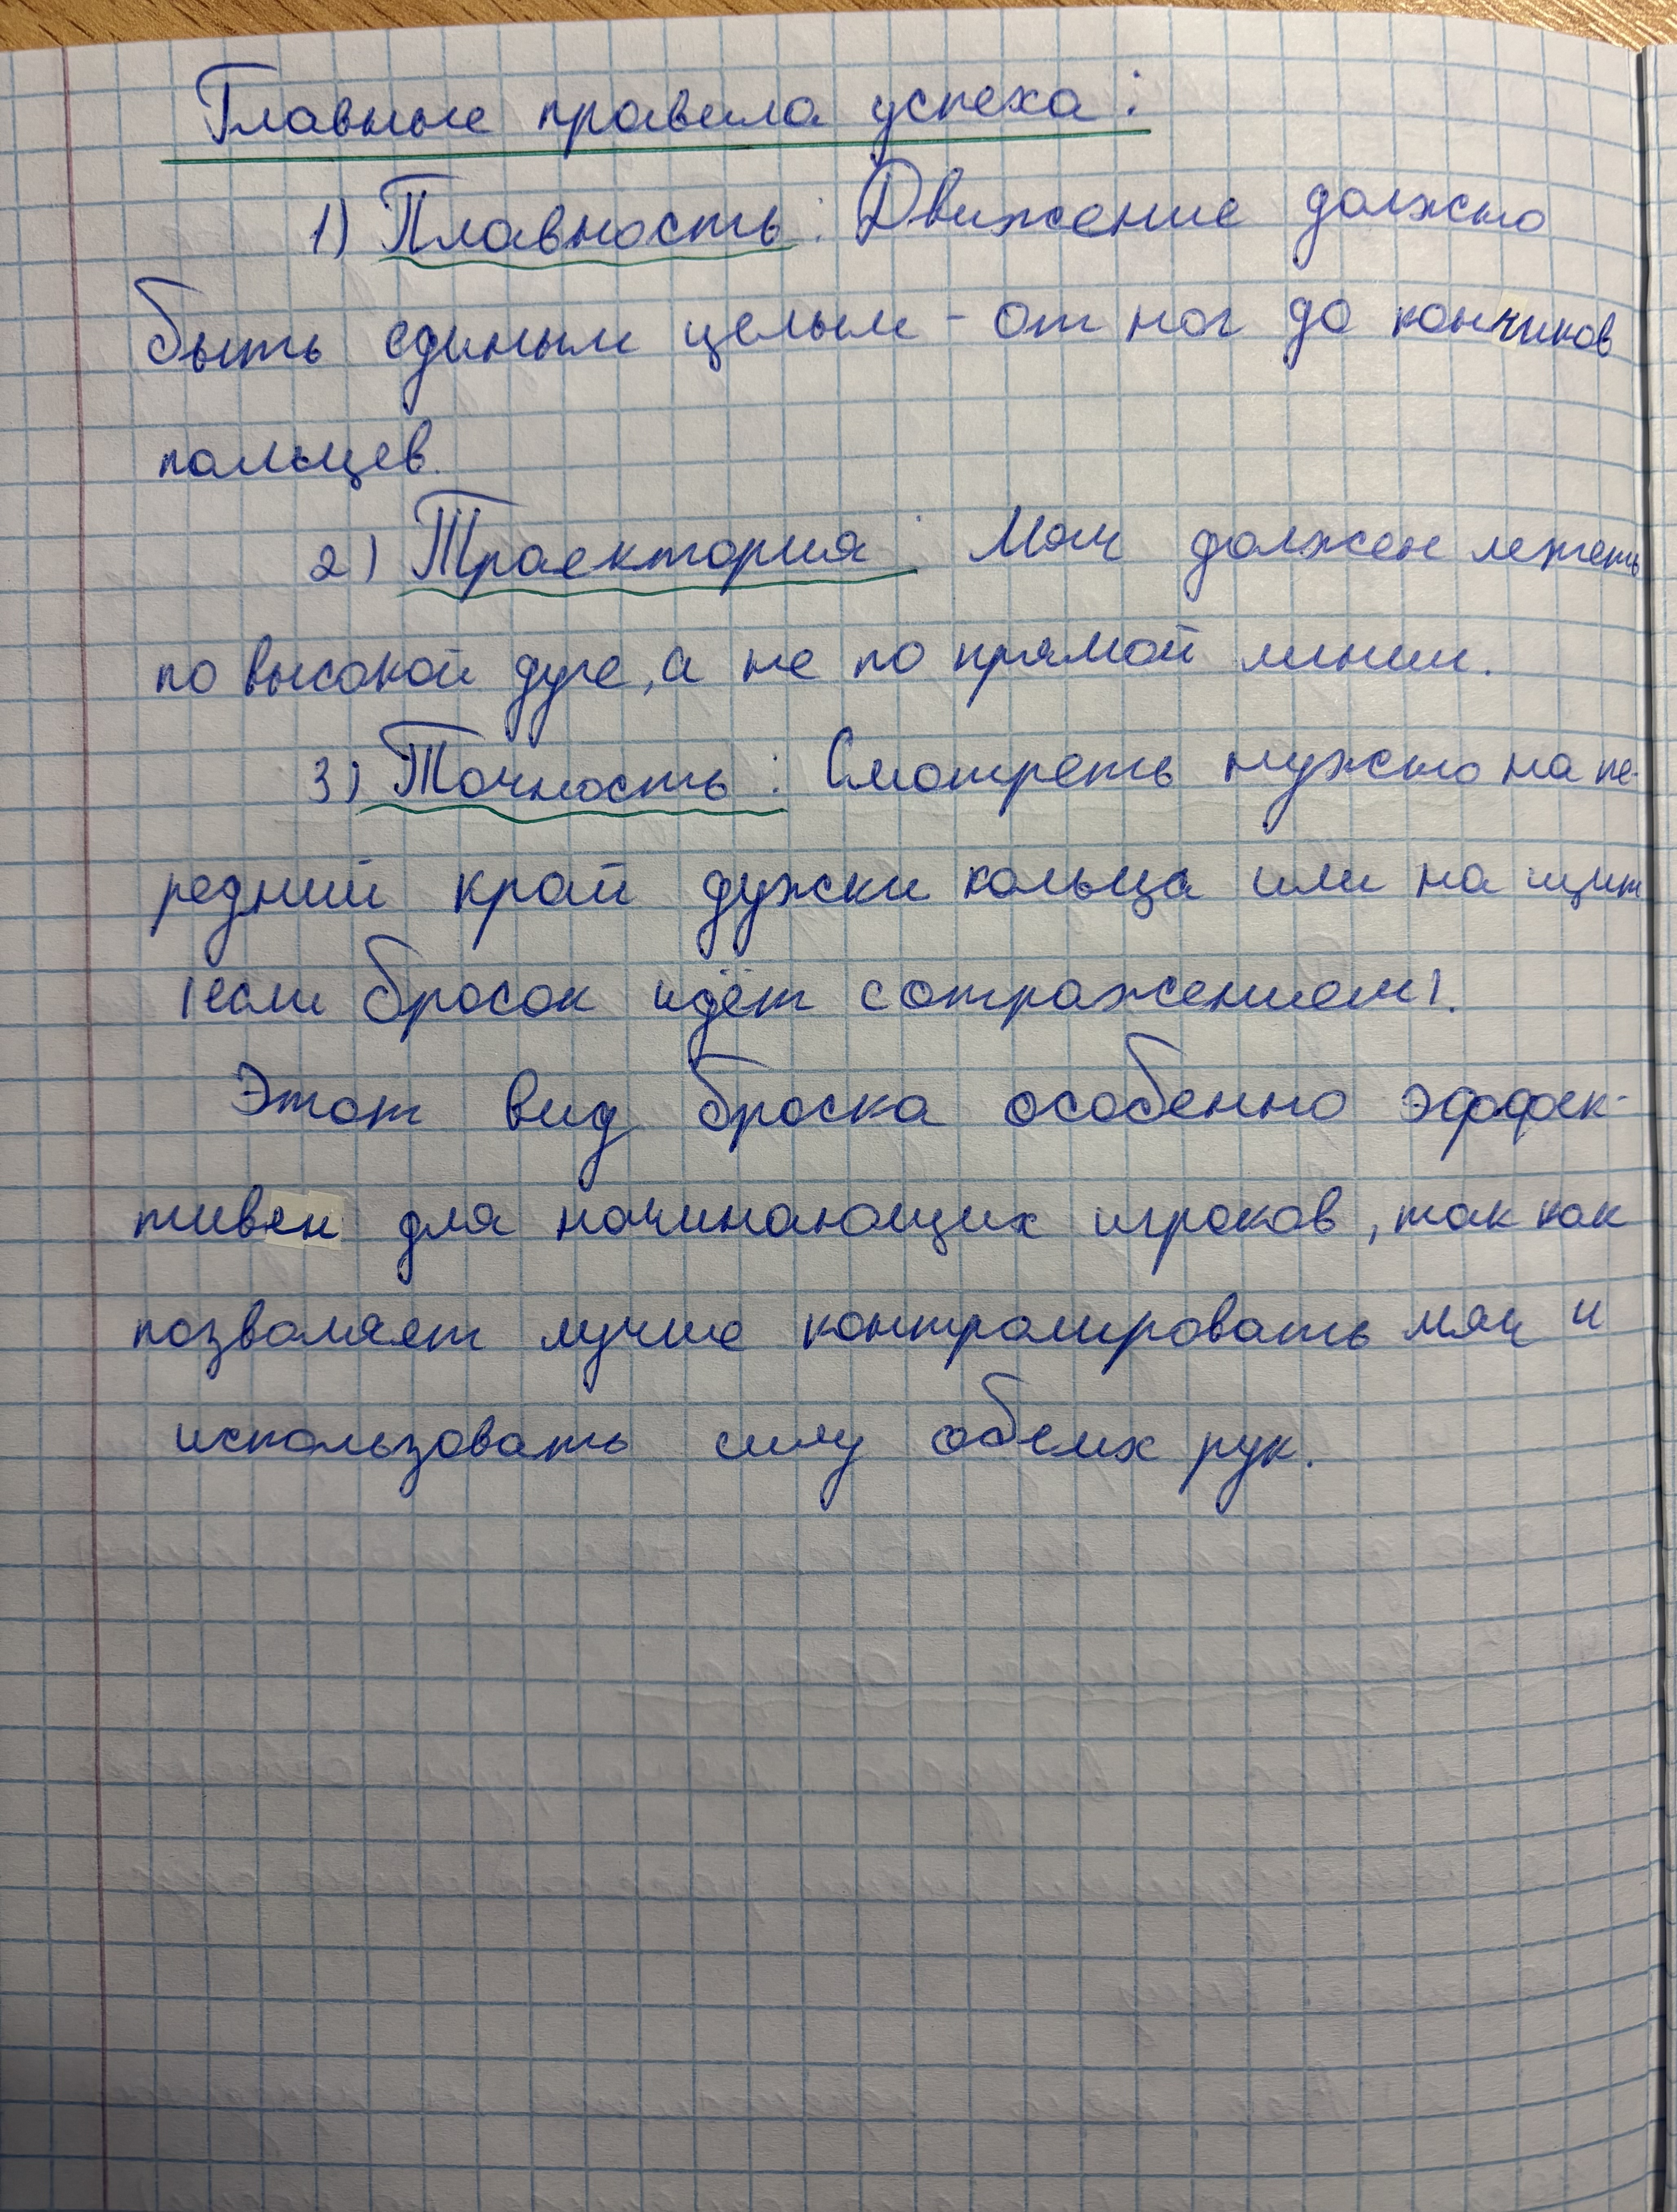 Главные правила успеха:
1) Плавность: Движение должно
быть единым целым - от ног до кончиков
пальцев.
2) Траектория: Мяч должен лететь
по высокой дуге, а не по прямой линии.
3) Точность: Смотреть нужно на пе-
редний край дужки кольца или на щит
(если бросок идёт с отражением).
Этот вид броска особенно эффек-
тивен для начинающих игроков, так как
позволяет лучше контролировать мяч и
использовать силу обеих рук.